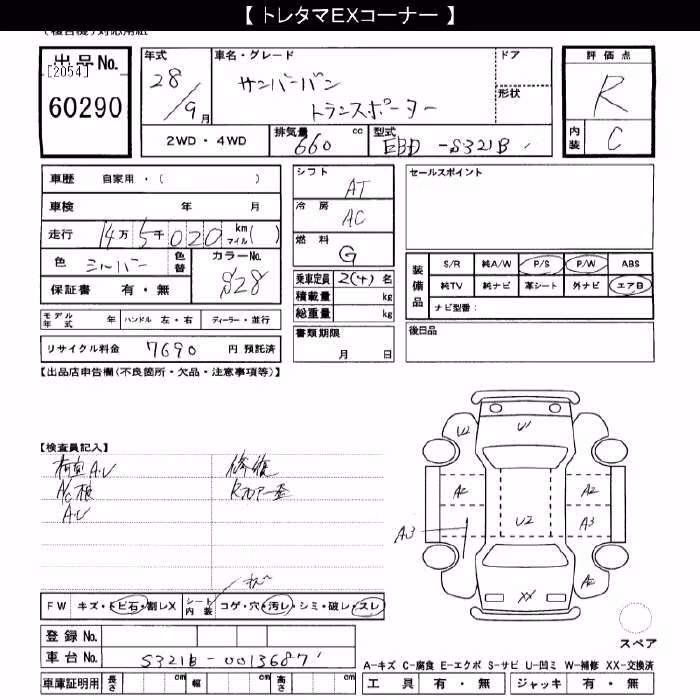 【 トレタマEXコーナー 】
出品No.
[2054]
60290
年式
28/9月
車名・グレード
サンバーバン
トランスポーター
ドア
形状
評価点
R
内装
C
2WD・4WD
排気量
660 cc
型式
EBD-S321B
車歴 自家用・( )
車検 年 月
走行 14万5千020 km マイル( )
色 シルバー 色替
カラーNo.
S28
保証書 有・無
モデル年式 年 ハンドル 左・右 ディーラー・並行
リサイクル料金 7690 円 預託済
シフト
AT
冷房
AC
燃料
G
乗車定員 2(4) 名
積載量 kg
総重量 kg
書類期限
月 日
セールスポイント
装備品
S/R 純A/W P/S P/W ABS
純TV 純ナビ 革シート 外ナビ エアB
ナビ型番:
後日品
【出品店申告欄(不良箇所・欠品・注意事項等)】
【検査員記入】
A・U
修復
A・U
Rフロアー歪
U2
U1
A2
A2
U2
A3
A3
A2
XX
スペア
FW キズ・トビ石・割レX
シート内装 コゲ・穴・汚レ・シミ・破レ・スレ
登録No.
車台No. S321B-0013687
車庫証明用 長さ cm 幅 cm 高さ cm
A-キズ C-腐食 E-エクボ S-サビ U-凹ミ W-補修 XX-交換済
工具 有・無 ジャッキ 有・無